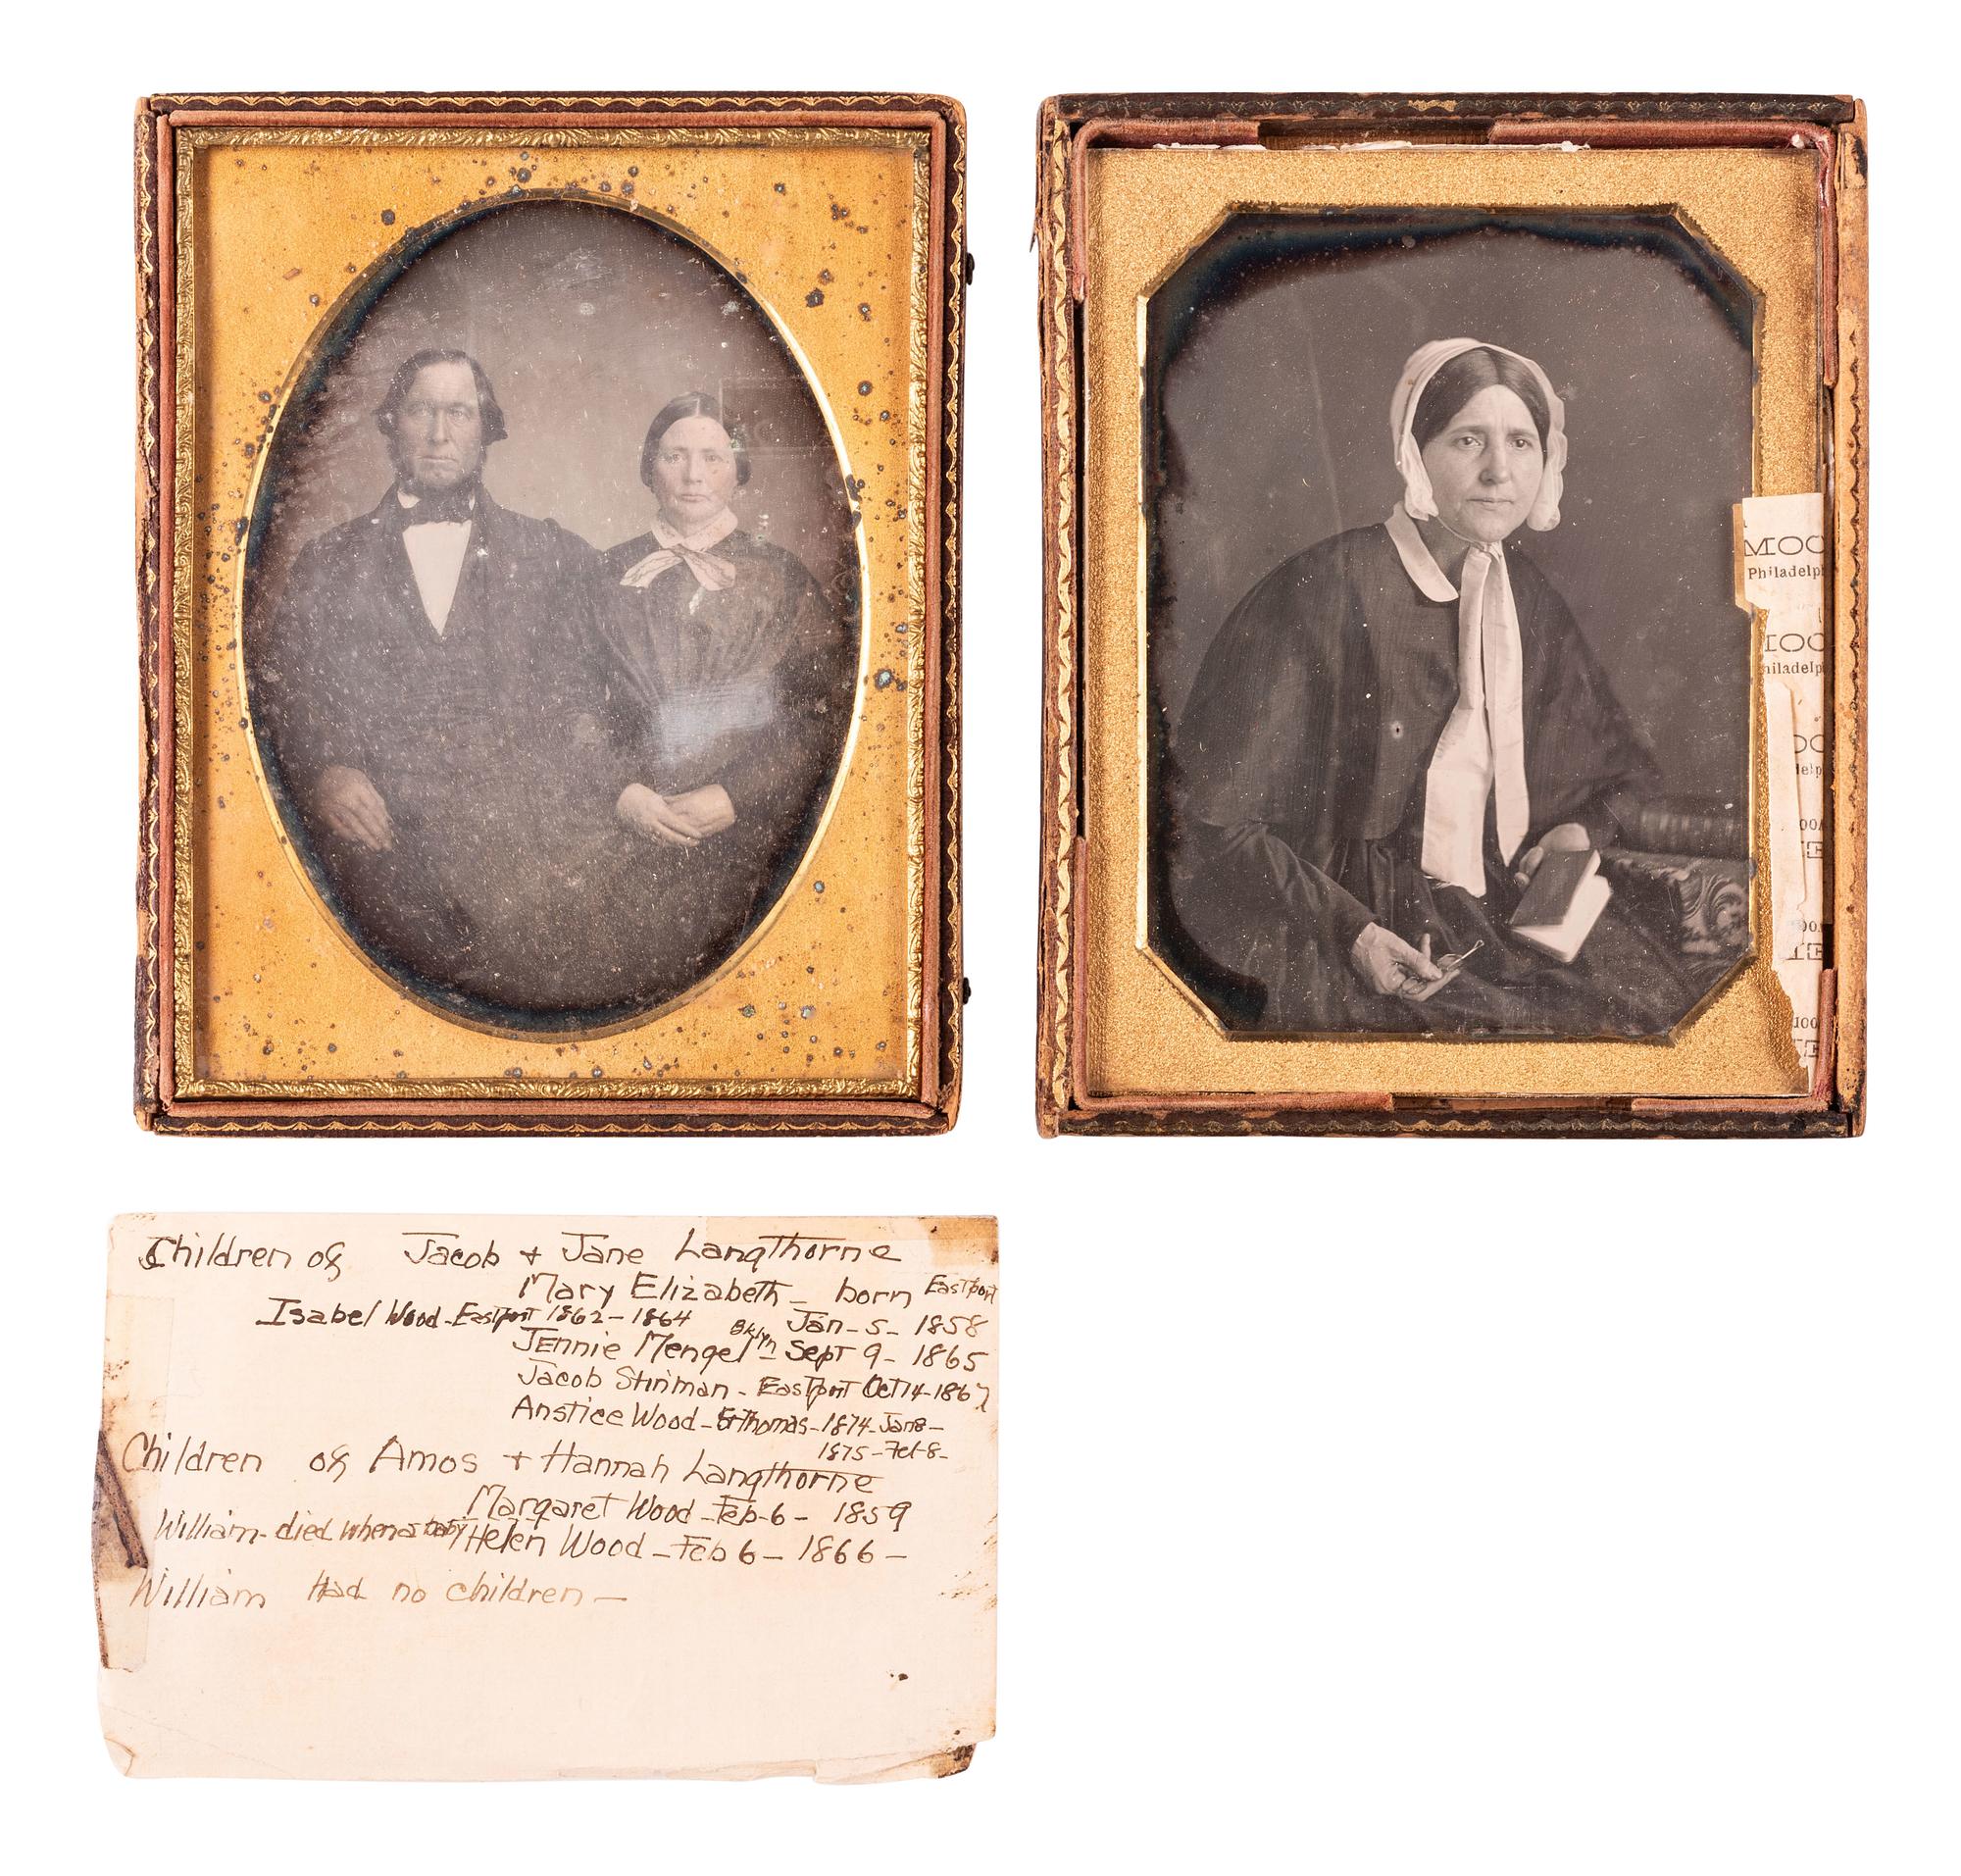 MOO
Philadelp
MOO
hiladelp
OO
delp
OO
OO
OO
Children of Jacob + Jane Langthorne
Mary Elizabeth - born Eastport
Isabel Wood - Eastport 1862 - 1864 Jan - 5 - 1858
Jennie Mengel Bklyn - Sept 9 - 1865
Jacob - Eastport Oct 14 - 1867
Anstice Wood - St Thomas - 1874 - Jan 8 -
1875 - Feb - 8 -
Children of Amos + Hannah Langthorne
Margaret Wood - Feb - 6 - 1859
William - died when a baby Helen Wood - Feb 6 - 1866 -
William Had no children -